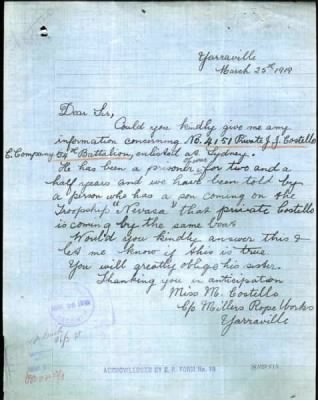 Yarraville
March 25th 1919
Dear Sir,
Could you kindly give me any
information concerning No. 4151 Private J. J. Costello
C. Company 54th Battalion, enlisted at Sydney.
of war
He has been a prisoner for two and a
half years and we have been told by
a person who has a son coming on the
Troopship "Nevasa" that private Costello
is coming by the same boat
Would you kindly answer this &
let me know if this is true
You will greatly oblige his sister.
Thanking you in anticipation
Miss M. Costello
C/o Millers Rope Works
Yarraville
ACKNOWLEDGED BY B. R. FORM No. 19